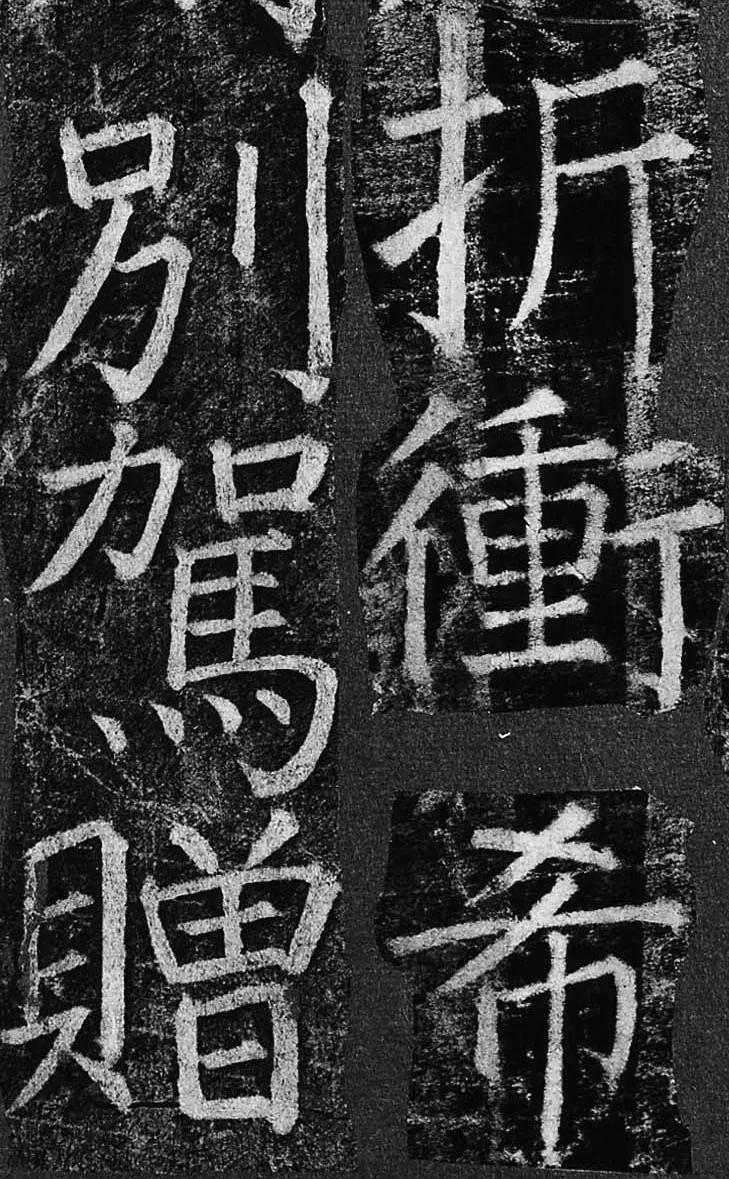 折衝希
別駕贈